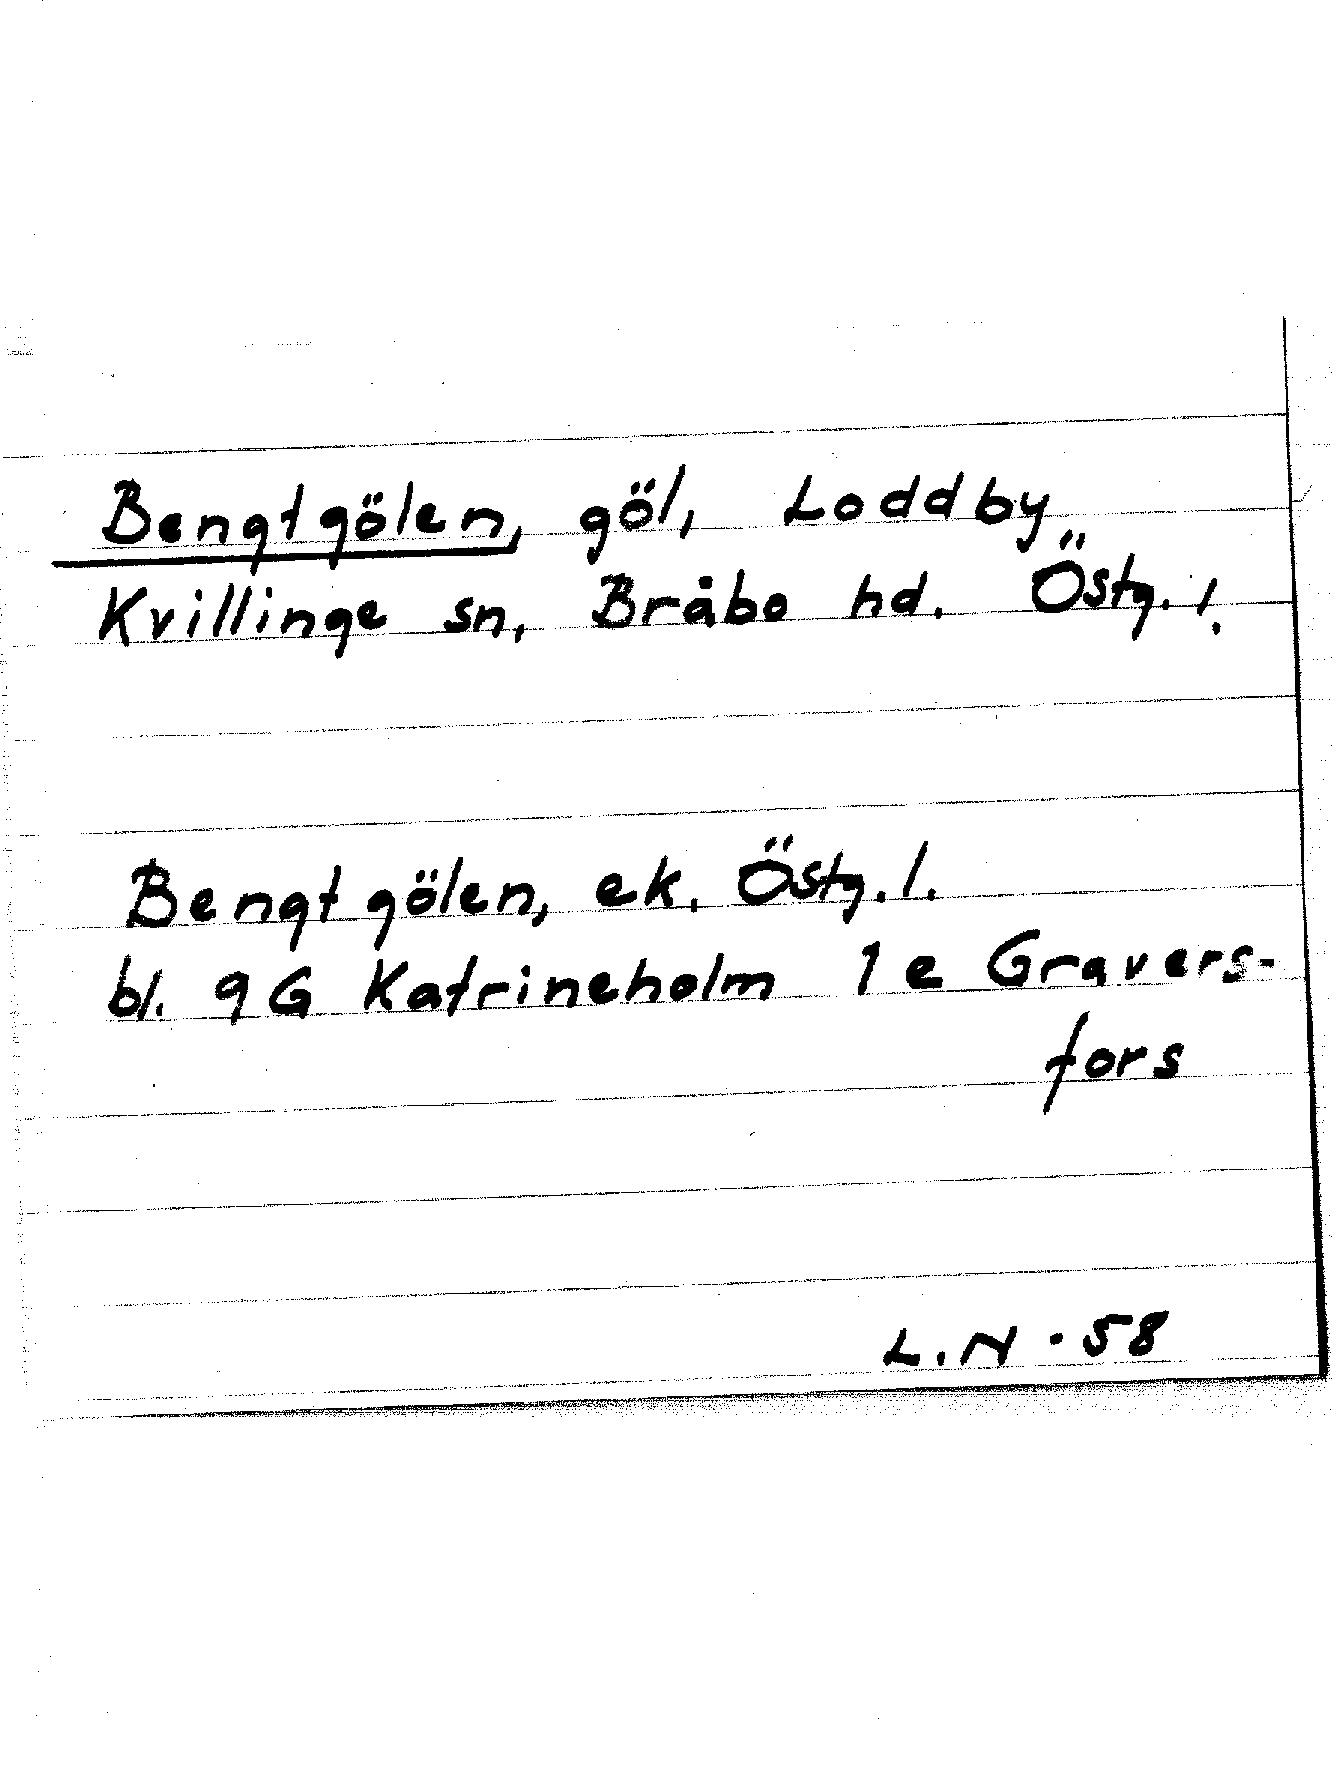 Bengtgölen, göl, Loddby
Kvillinge sn, Bråbo hd. Östg. l.
Bengtgölen, ek. Östg. l.
bl. 9G Katrineholm 1e Gravers-
fors
L.N. 58